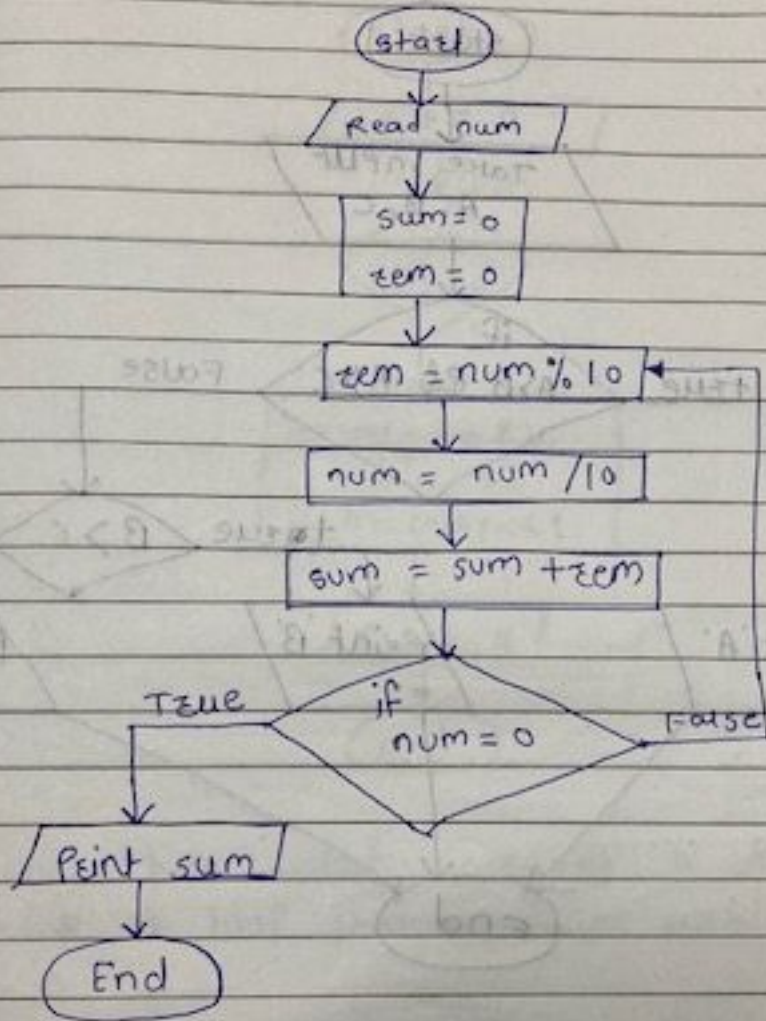 start
Read num
sum = 0
rem = 0
rem = num % 10
num = num / 10
sum = sum + rem
if
num = 0
True
False
Print sum
End